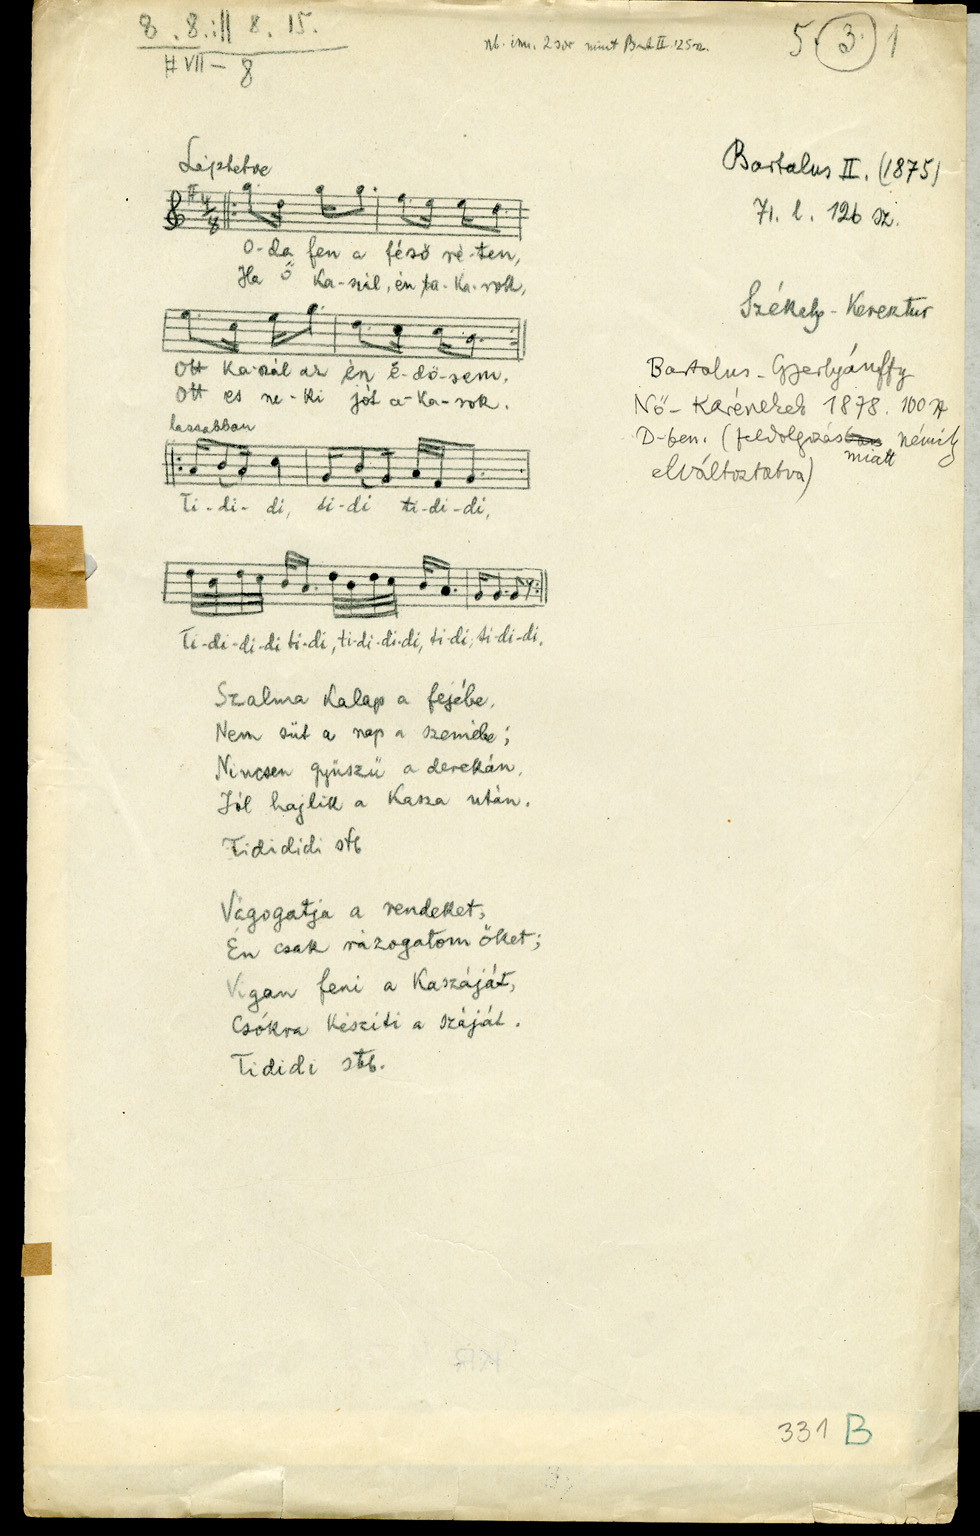 8 . 8. :|| 8. 15.
VII – 8
2 sor mint Bart II. 125 sz.
5 3 1
Léptetve
Bartalus II. (1875)
71. l. 126 sz.
O-da fen a fésö ré-ten,
Ha ő Ka-szál, én ta-ka-rok,
Székely-Keresztur
Ott ka-szál az én ë-dö-sem.
Ott es ne-ki jót a-ka-rok.
Bartalus-Gyertyánffy
Nő-Karénekek 1878. 100
D-ben. (feldolgozás miatt némileg
elváltoztatva)
lassabban
Ti-di-di, ti-di ti-di-di,
Ti-di-di-di ti-di, ti-di-di-di, ti-di, ti-di-di.
Szalma kalap a fejébe,
Nem süt a nap a szemébe;
Nincsen gyüszü a derekán,
Jól hajlik a kasza után.
Tidididi stb
Vágogatja a rendeket,
Én csak rázogatom őket;
Vigan feni a kaszáját,
Csókra készíti a száját.
Tididi stb.
331 B